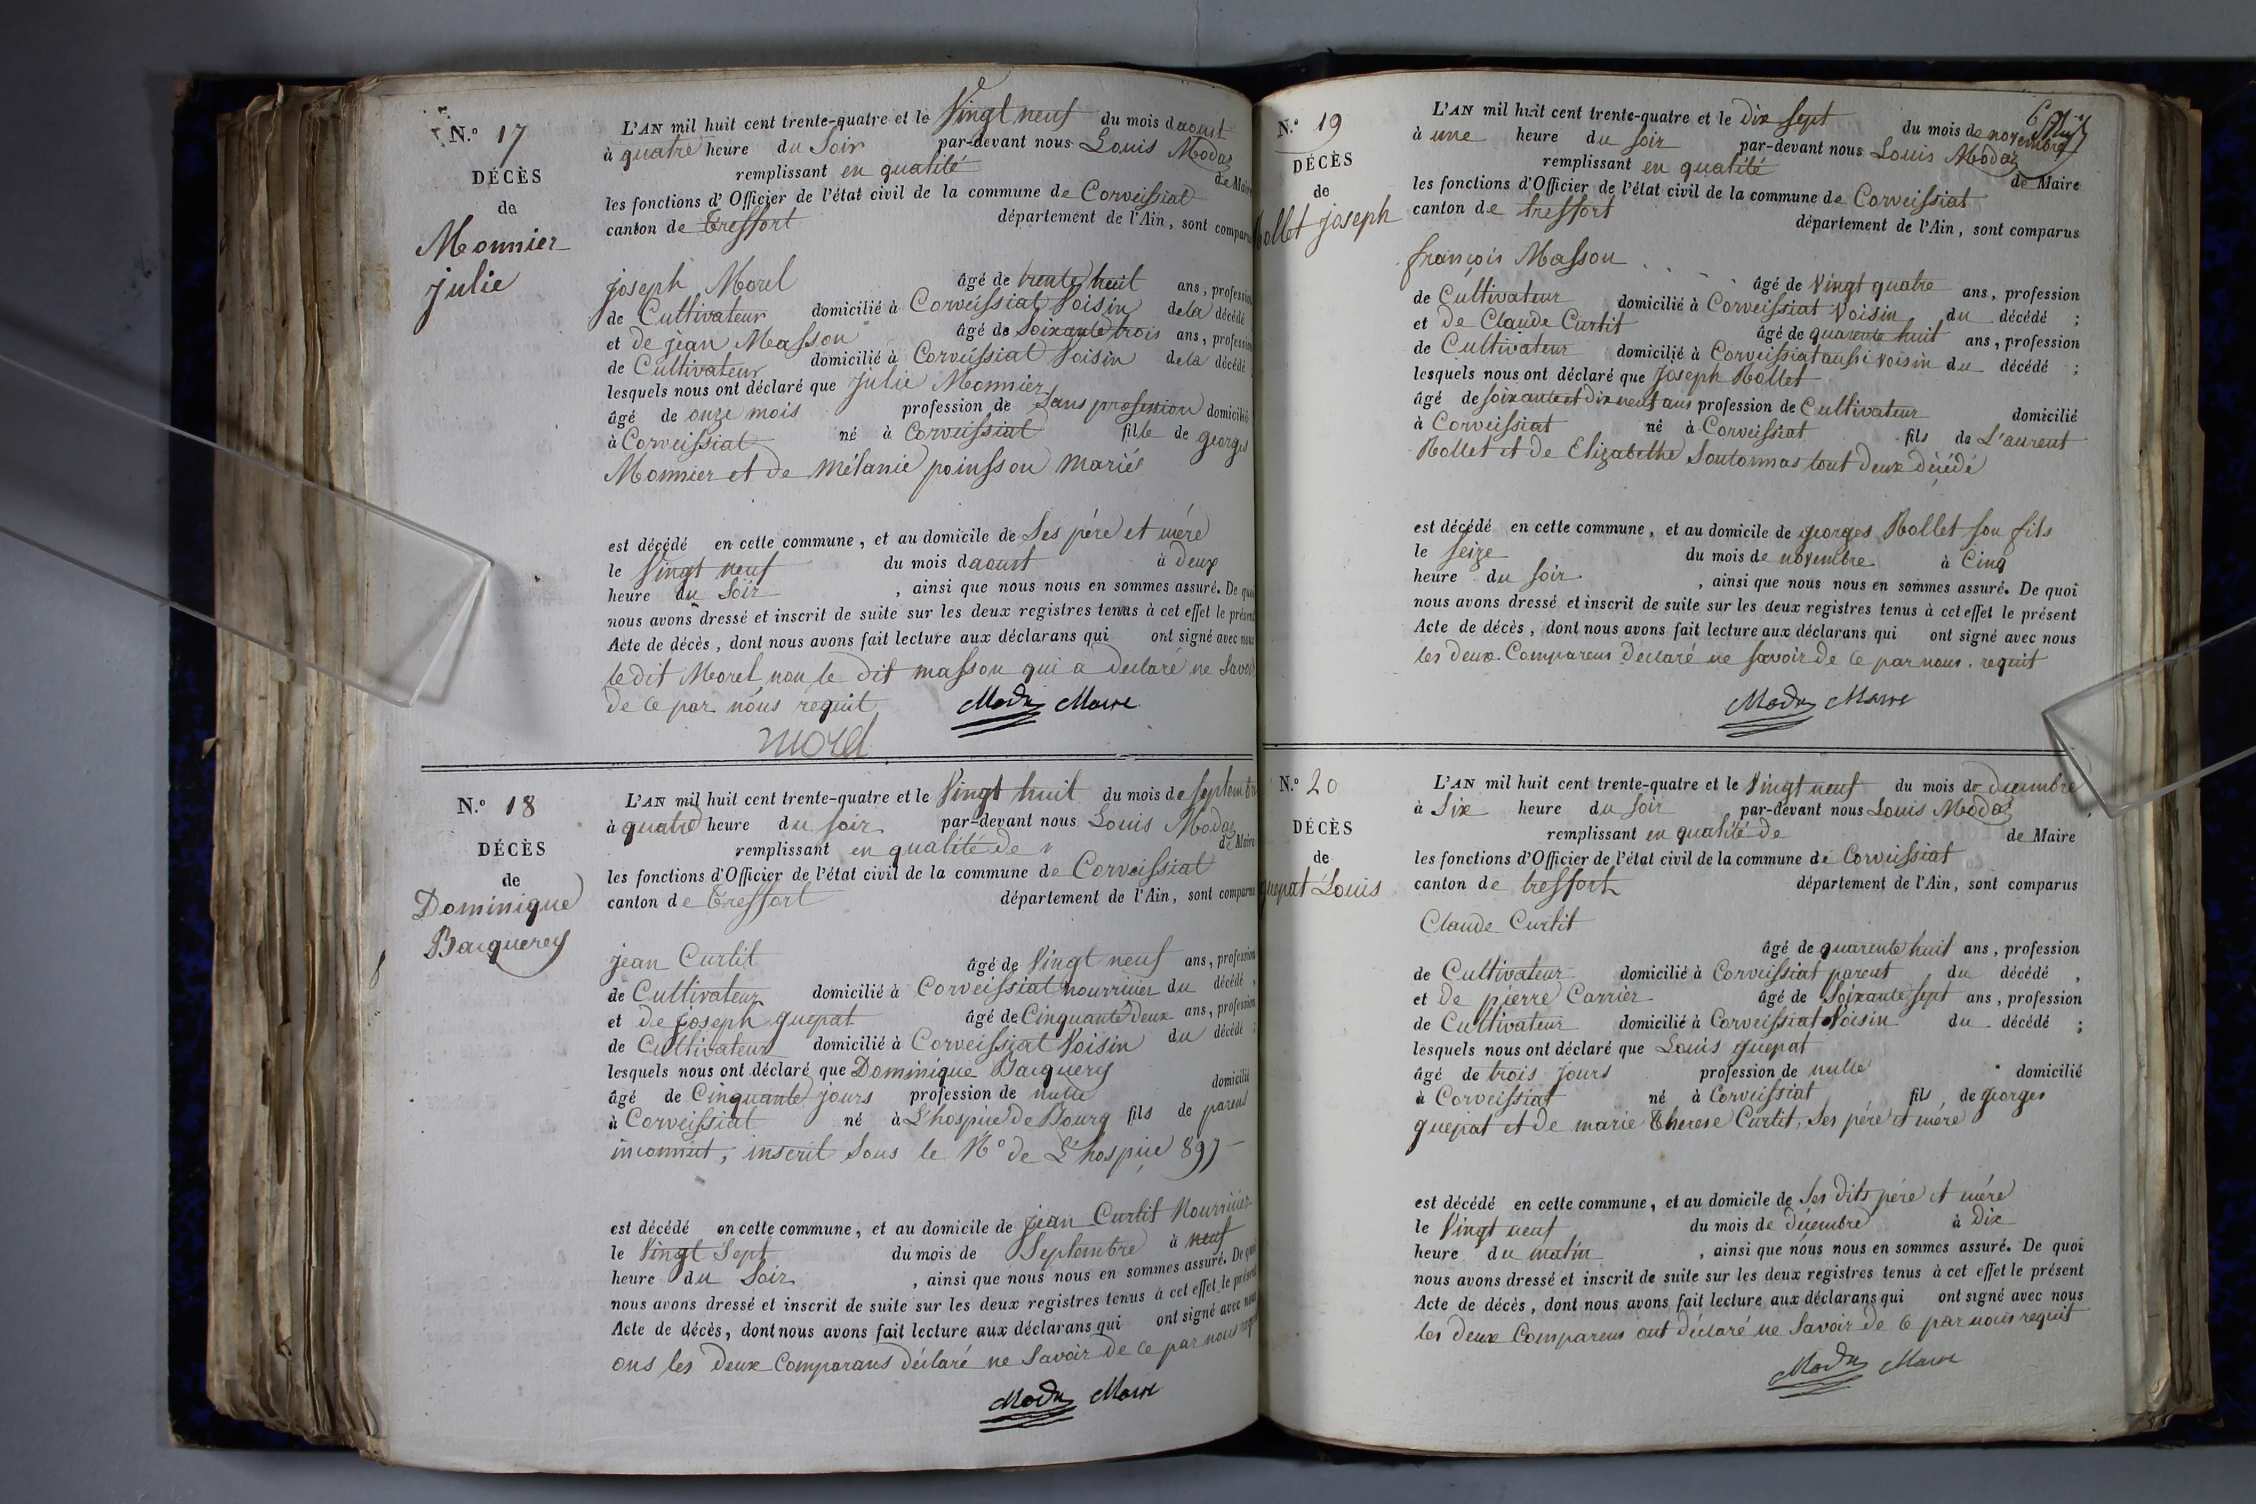 N.o 17
DÉCÈS
de
Monnier
julie
L'AN mil huit cent trente-quatre et le Vingt neuf du mois daoust
à quatre heure du Soir par-devant nous Louis Modas
remplissant en qualité de Maire
les fonctions d'Officier de l'état civil de la commune de Corveissiat
canton de Treffort département de l'Ain, sont comparus
joseph Morel âgé de trente huit ans, profession
de Cultivateur domicilié à Corveissiat Voisin dela décédé
et de jean Masson âgé de Soixante trois ans, profession
de Cultivateur domicilié à Corveissiat Voisin dela décédé
lesquels nous ont déclaré que Julie Monnier
âgé de onze mois profession de Sans profession domicilié
à Corveissiat né à Corveissiat fille de georges
Monnier et de mélanie poinsson mariés
est décédé en cette commune, et au domicile de Ses pére et mére
le Vingt neuf du mois daoust à deux
heure du Soir , ainsi que nous nous en sommes assuré. De quoi
nous avons dressé et inscrit de suite sur les deux registres tenus à cet effet le présent
Acte de décès, dont nous avons fait lecture aux déclarans qui ont signé avec nous
le dit Morel non le dit masson qui a declaré ne Savoir
de ce par nous requit
Modas Maire
morel
N.o 18
DÉCÈS
de
Dominique
Bacquerey
L'AN mil huit cent trente-quatre et le Vingt huit du mois de Septembre
à quatre heure du soir par-devant nous Louis Modas
remplissant en qualité de de Maire
les fonctions d'Officier de l'état civil de la commune de Corveissiat
canton de Treffort département de l'Ain, sont comparus
jean Curtit âgé de Vingt neuf ans, profession
de Cultivateur domicilié à Corveissiat nourricier du décédé,
et de joseph guepat âgé de Cinquante Deux ans, profession
de Cultivateur domicilié à Corveissiat Voisin du décédé ;
lesquels nous ont déclaré que Dominique Bacquery
âgé de Cinquante jours profession de nulle domicilié
à Corveissiat né à L'hospice de Bourg fils de parens
inconnut, inscrit Sous le No de L'hospice 897
est décédé en cette commune, et au domicile de jean Curtit Nourricier
le Vingt Sept du mois de Septembre à neuf
heure du Soir , ainsi que nous nous en sommes assuré. De quoi
nous avons dressé et inscrit de suite sur les deux registres tenus à cet effet le présent
Acte de décès, dont nous avons fait lecture aux déclarans qui ont signé avec nous
ons les deux Comparans déclaré ne Savoir de ce par nous requit
Modas Maire
N.o 19
DÉCÈS
de
Rollet joseph
L'AN mil huit cent trente-quatre et le dix sept du mois de novembre
à une heure du soir par-devant nous Louis Modas
remplissant en qualité de Maire
les fonctions d'Officier de l'état civil de la commune de Corveissiat
canton de treffort département de l'Ain, sont comparus
françois Masson âgé de Vingt quatre ans, profession
de Cultivateur domicilié à Corveissiat Voisin du décédé ;
et de Claude Curtit âgé de quarente huit ans, profession
de Cultivateur domicilié à Corveissiat aussi voisin du décédé ;
lesquels nous ont déclaré que Joseph Rollet
âgé de soixante et dix neuf ans profession de Cultivateur domicilié
à Corveissiat né à Corveissiat fils de L'aurent
Rollet et de Elizabethe Soutonnas tout deux décédé
est décédé en cette commune, et au domicile de georges Rollet son fils
le seize du mois de novembre à Cinq
heure du soir , ainsi que nous nous en sommes assuré. De quoi
nous avons dressé et inscrit de suite sur les deux registres tenus à cet effet le présent
Acte de décès, dont nous avons fait lecture aux déclarans qui ont signé avec nous
les deux Comparens declaré ne savoir de ce par nous requit
Modas Maire
N.o 20
DÉCÈS
de
guepat Louis
L'AN mil huit cent trente-quatre et le Vingt neuf du mois de decembre
à Six heure du soir par-devant nous Louis Modas
remplissant en qualité de de Maire
les fonctions d'Officier de l'état civil de la commune de Corveissiat
canton de treffort département de l'Ain, sont comparus
Claude Curtit
âgé de quarente huit ans, profession
de Cultivateur domicilié à Corveissiat parent du décédé ,
et de pierre Carrier âgé de Soixante sept ans, profession
de Cultivateur domicilié à Corveissiat Voisin du décédé ;
lesquels nous ont déclaré que Louis guepat
âgé de trois jours profession de nulle domicilié
à Corveissiat né à Corveissiat fils de georges
guepat et de marie Therese Curtit, Ses pére et mére
est décédé en cette commune, et au domicile de Ses dits pére et mére
le Vingt neuf du mois de décembre à dix
heure du matin , ainsi que nous nous en sommes assuré. De quoi
nous avons dressé et inscrit de suite sur les deux registres tenus à cet effet le présent
Acte de décès, dont nous avons fait lecture aux déclarans qui ont signé avec nous
les deux Comparens ont déclaré ne Savoir de ce par nous requit
Modas Maire